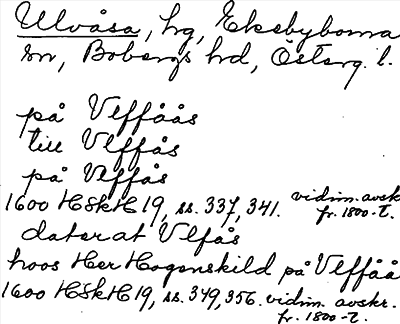 Ulvåsa, hg, Ekebyborna
sn, Bobergs hd, Österg. l.
på Vlffåås
till Vlffås
på Vlffås
1600 HSkH 19, ss. 337, 341. vidim. avskr.
fr. 1800-t.
daterat Vlfås
hoos Her Hogenskild på Vlffåå
1600 HSkH 19, ss. 349, 356. vidim. avskr.
fr. 1800-t.